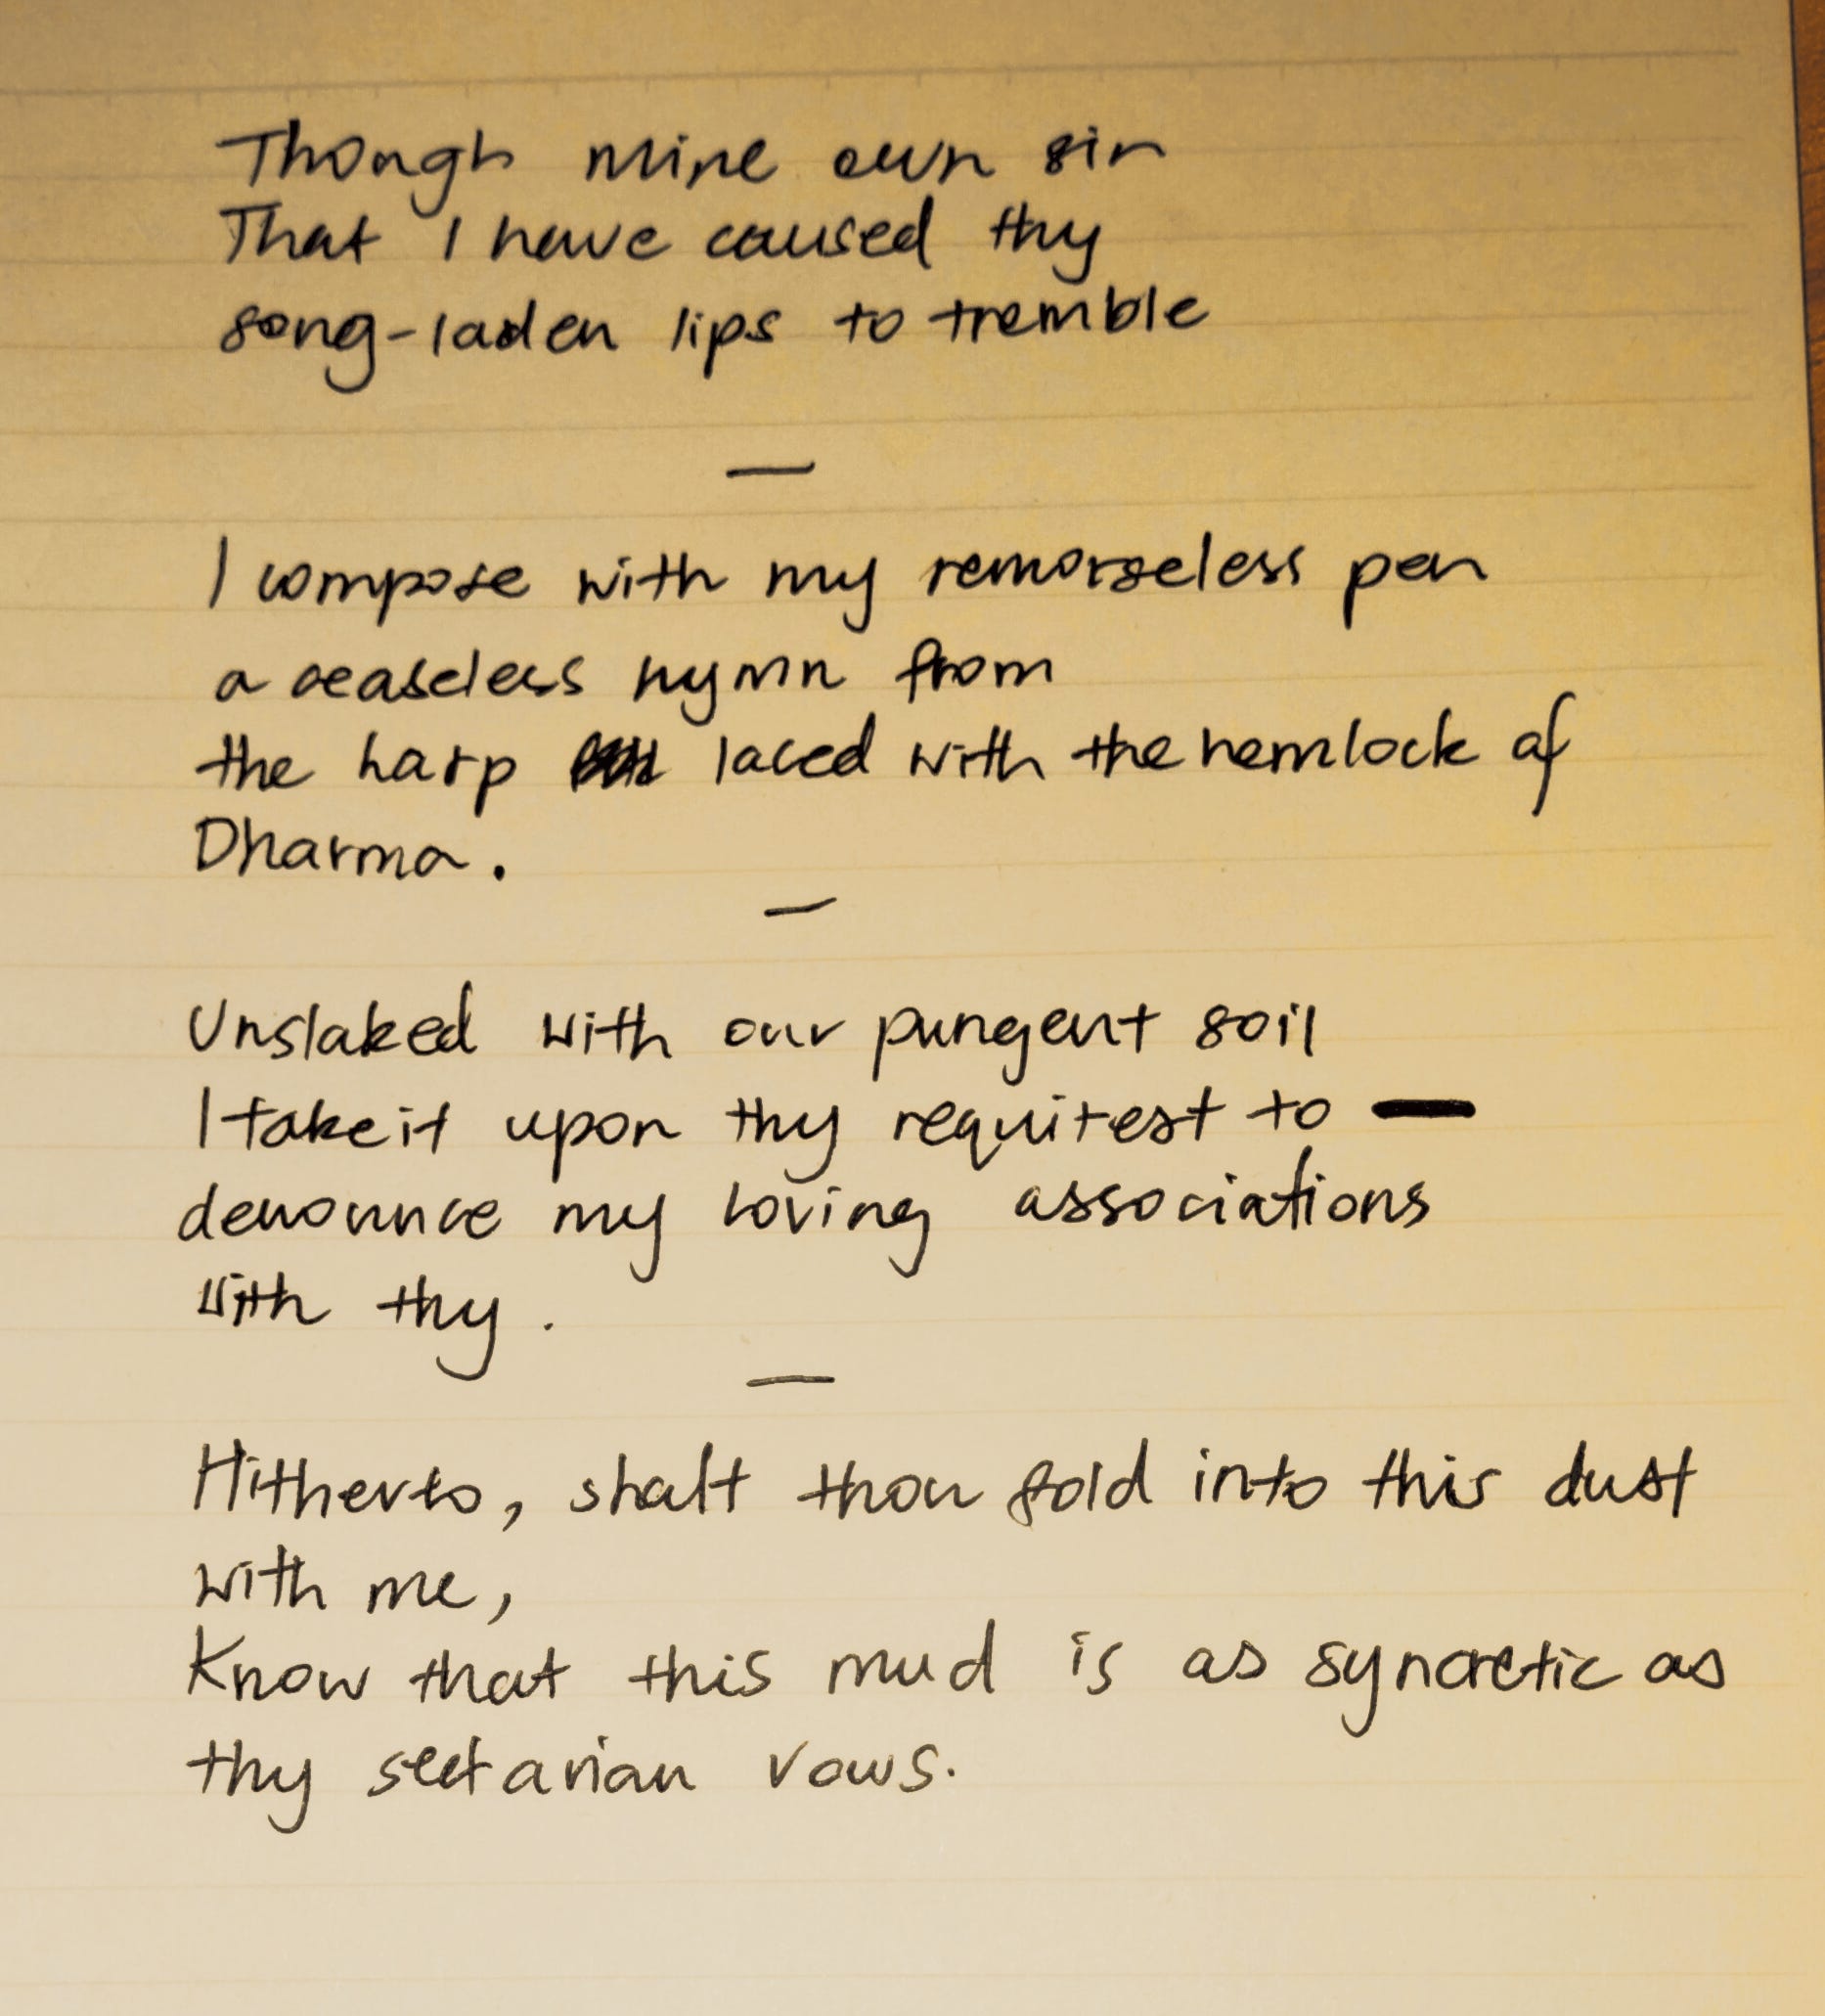 Though mine own sin
That I have caused thy
song-laden lips to tremble
—
I compose with my remorseless pen
a ceaseless hymn from
the harp laced with the hemlock of
Dharma.
—
Unslaked with our pungent soil
I take it upon thy requitest to —
denounce my loving associations
with thy.
—
Hitherto, shalt thou fold into this dust
with me,
Know that this mud is as syncretic as
thy sectarian vows.